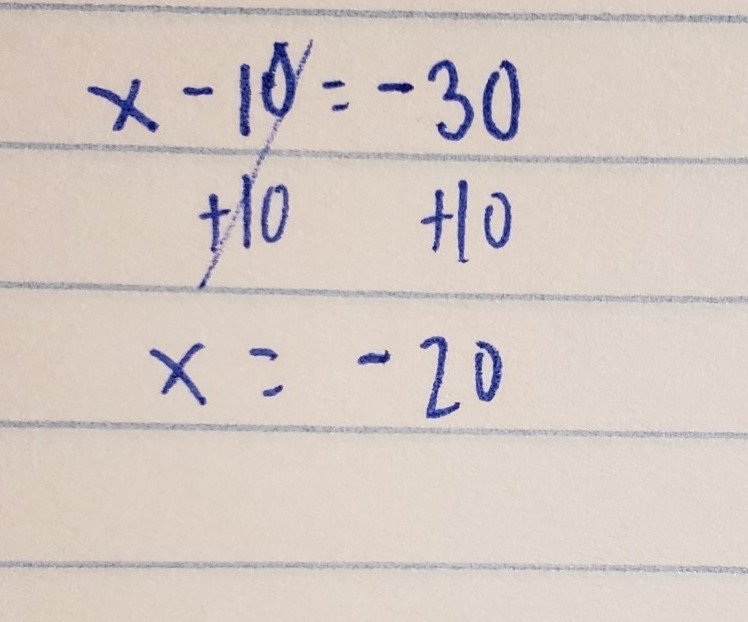 x - 10 = -30
+10 +10
x = -20